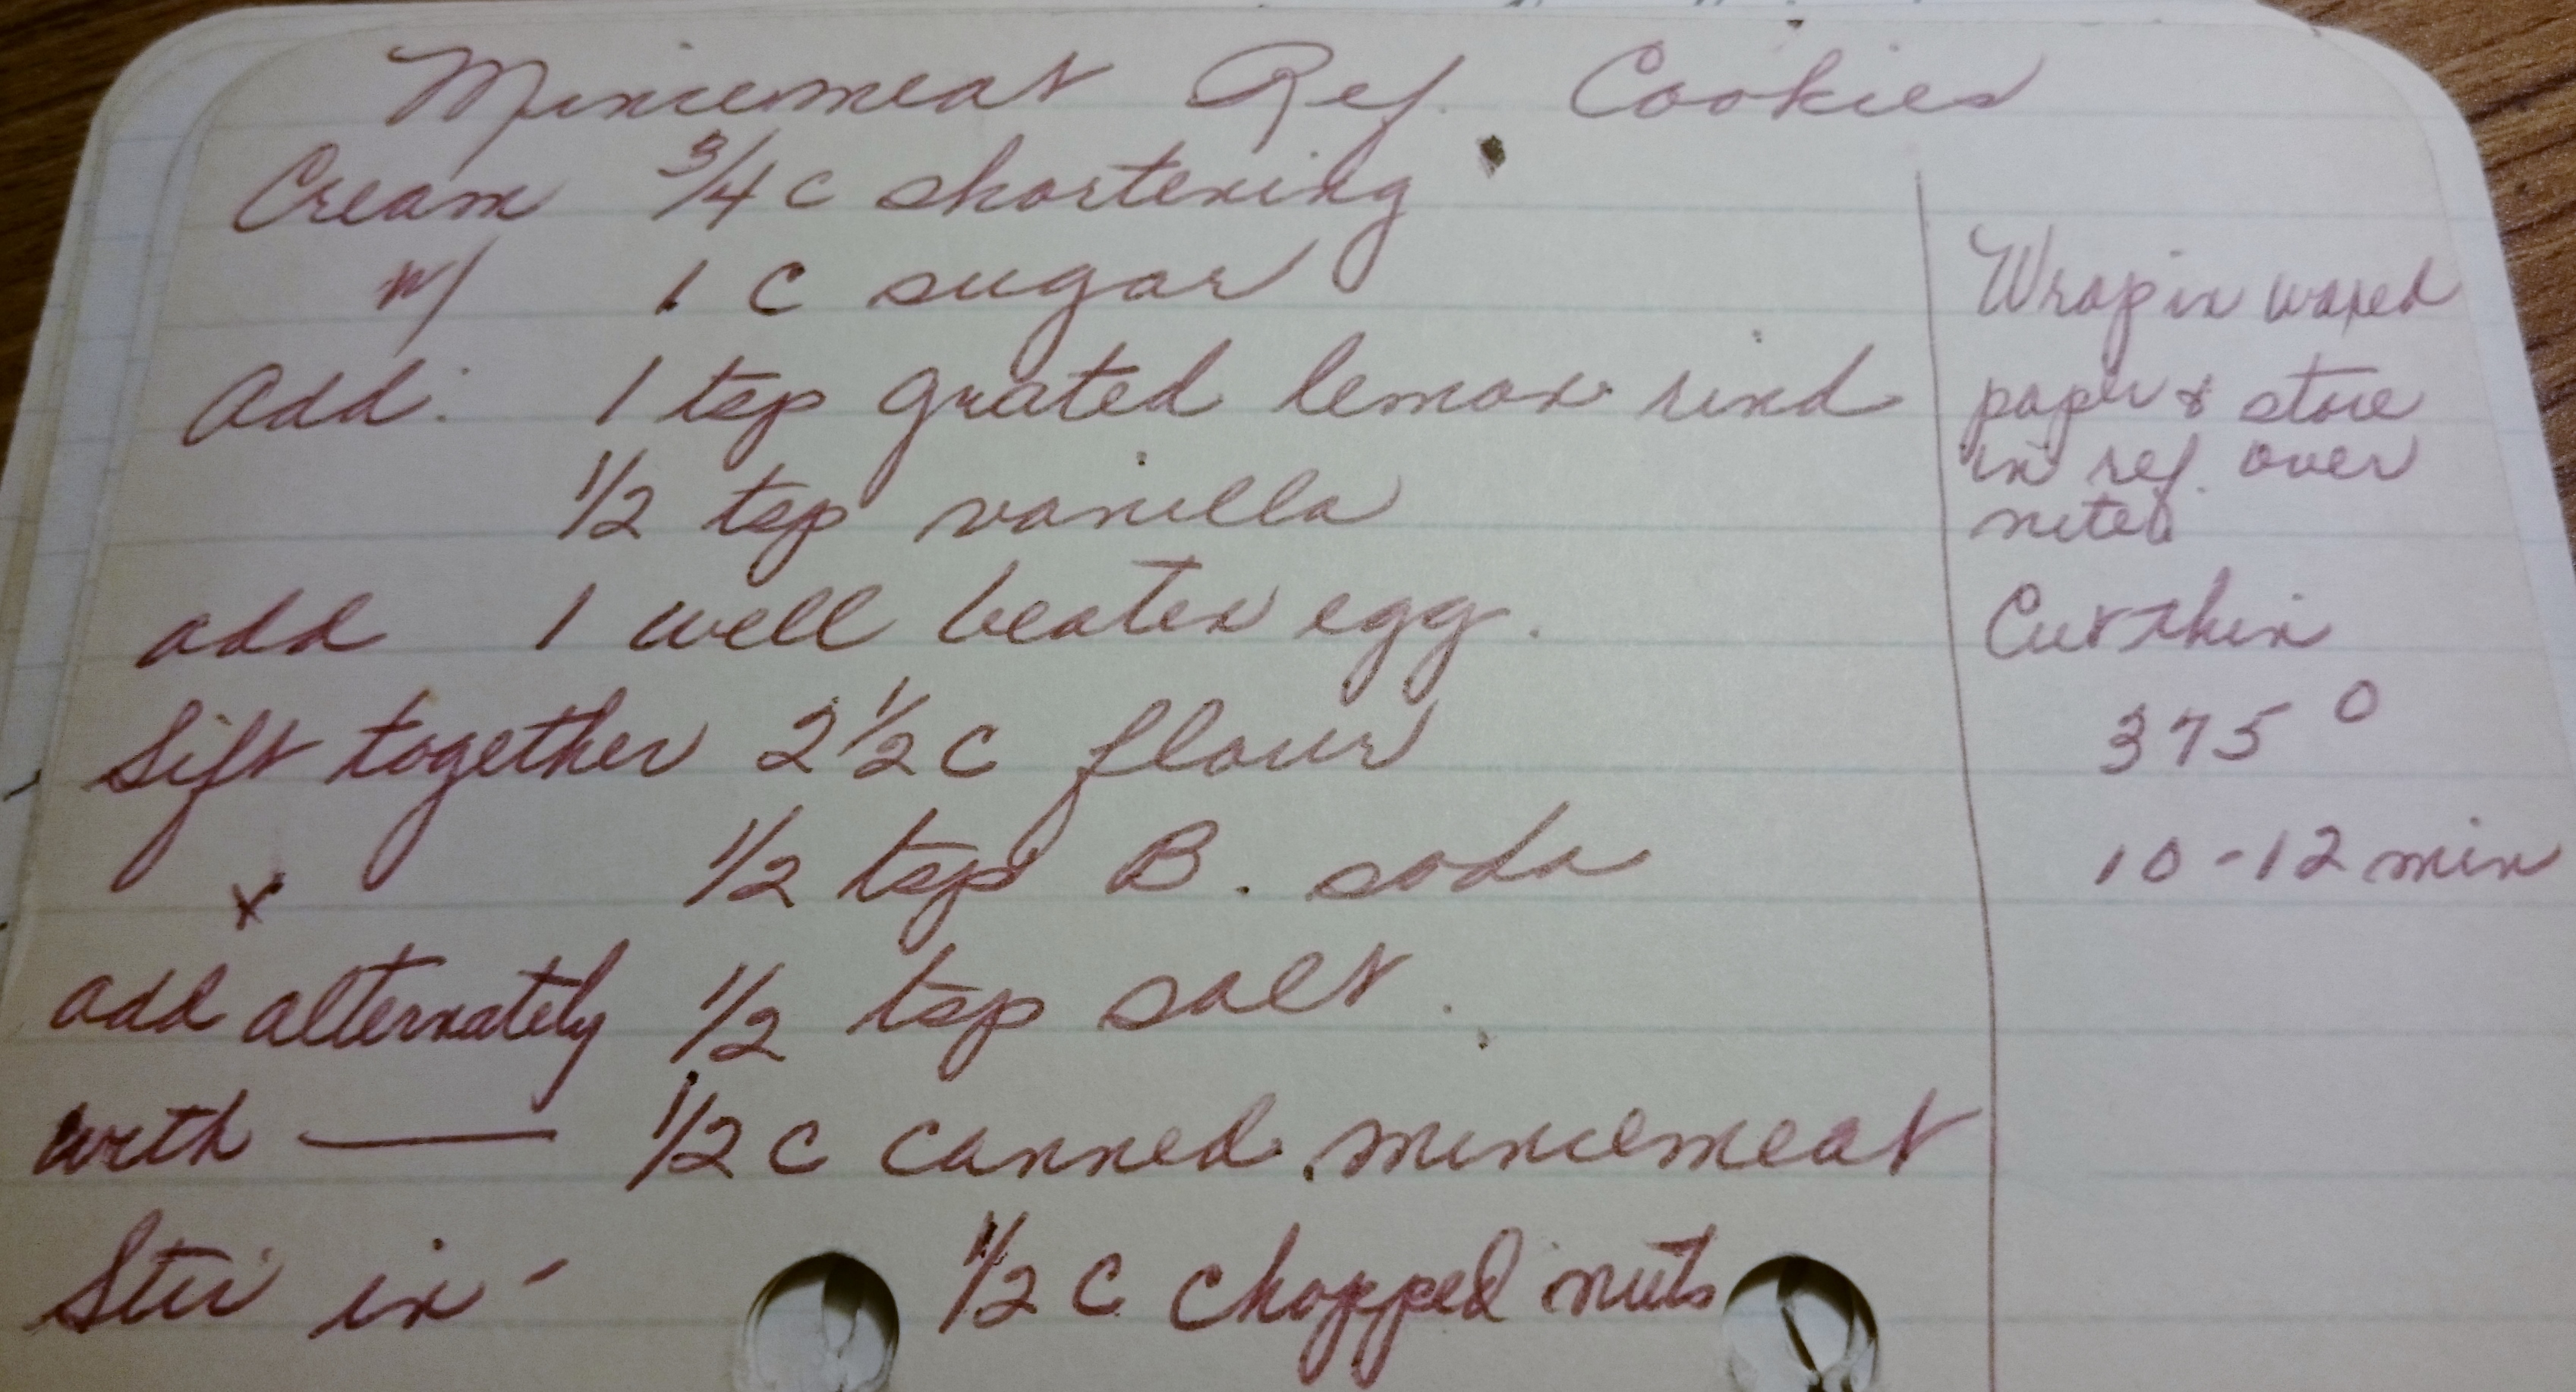 Mincemeat Ref. Cookies
Cream 3/4 c shortening
w/ 1 c sugar
Add: 1 tsp grated lemon rind
1/2 tsp vanilla
add 1 well beaten egg.
Sift together 2 1/2 c flour
& 1/2 tsp B. soda
add alternately 1/2 tsp salt
with — 1/2 c canned mincemeat
Stir in - 1/2 c chopped nuts
Wrap in waxed
paper & store
in ref. over
nite
Cut thin
375°
10-12 min